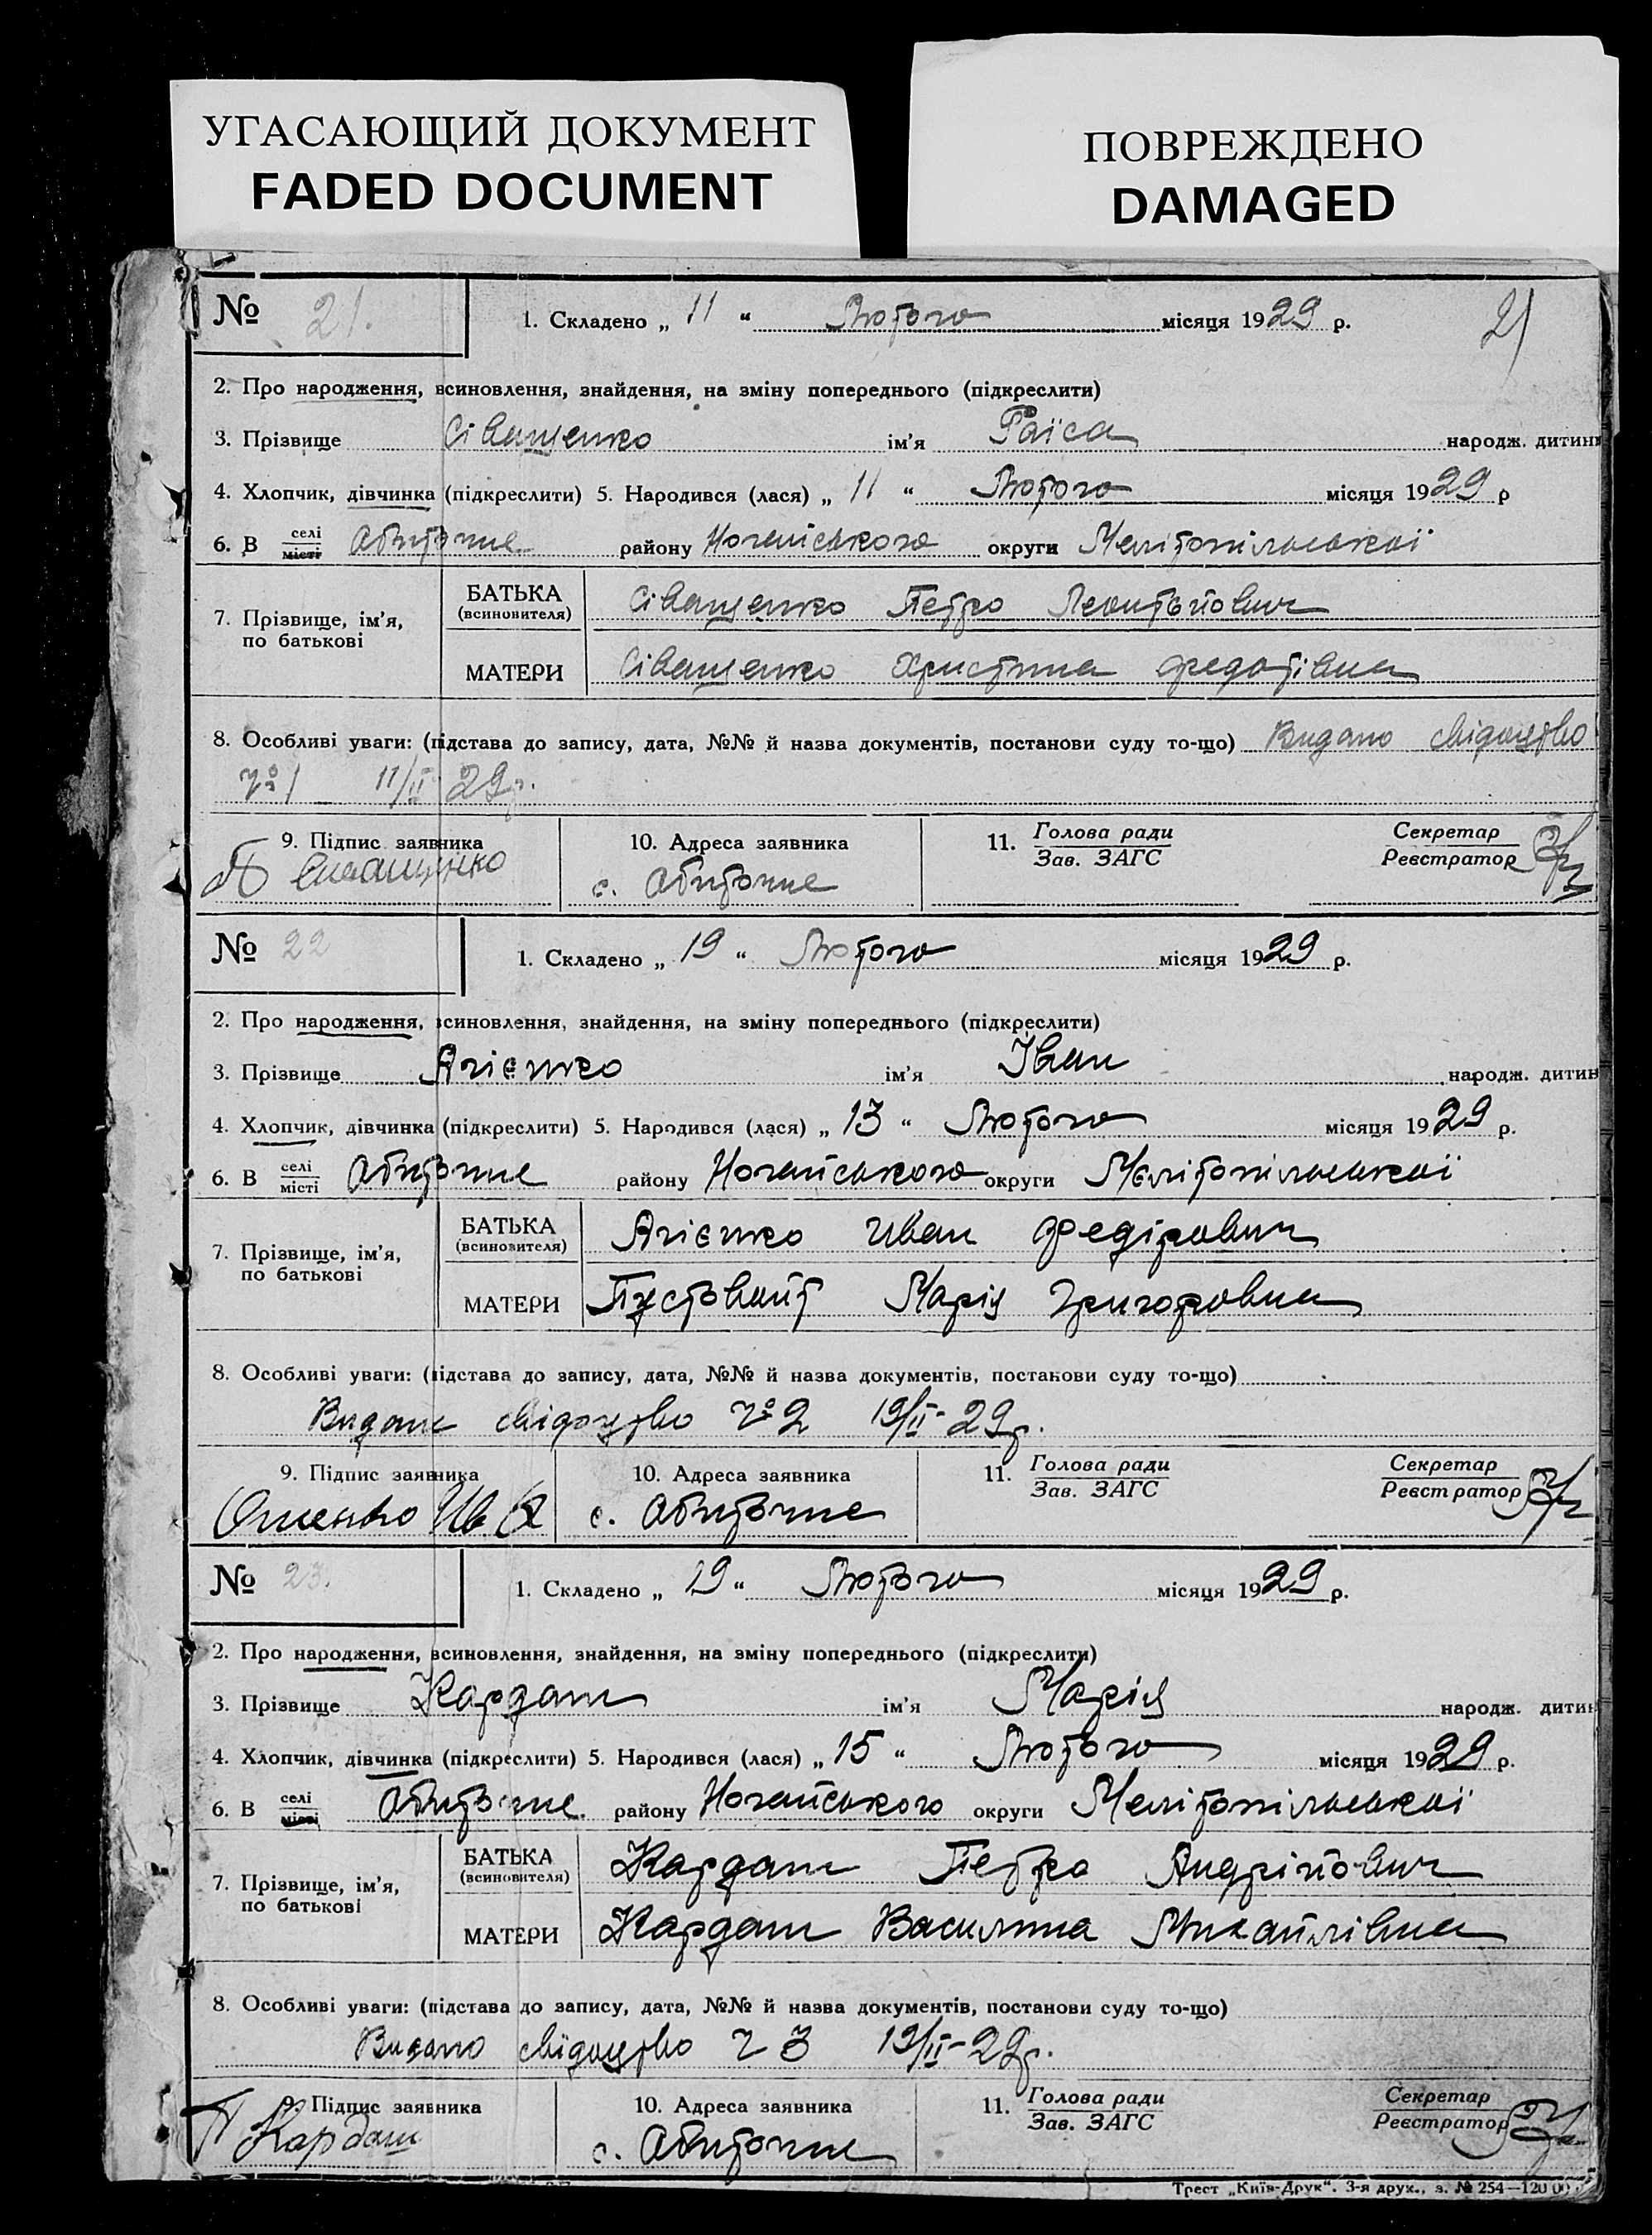 УГАСАЮЩИЙ ДОКУМЕНТ
FADED DOCUMENT
ПОВРЕЖДЕНО
DAMAGED
№ 21. 1. Складено „ 11 “ Лютого місяця 1929 р. 21
2. Про народження, всиновлення, знайдення, на зміну попереднього (підкреслити)
3. Прізвище Сіващенко ім’я Раїса народж. дитини
4. Хлопчик, дівчинка (підкреслити) 5. Народився (лася) „ 11 “ Лютого місяця 1929 р
6. В селі місті Обиточне району Ногайського округи Мелітопільської
7. Прізвище, ім’я, по батькові
БАТЬКА (всиновителя) Сіващенко Петро Леонтьйович
МАТЕРИ Сіващенко Христина Федотівна
8. Особливі уваги: (підстава до запису, дата, №№ й назва документів, постанови суду то-що) Видано свідоцтво
№ 1 11/II 29р.
9. Підпис заявника 10. Адреса заявника 11. Голова ради Зав. ЗАГС Секретар Реєстратор
П Сиващенко с. Обиточне
№ 22 1. Складено „ 19 “ Лютого місяця 1929 р.
2. Про народження, всиновлення, знайдення, на зміну попереднього (підкреслити)
3. Прізвище Агієнко ім’я Іван народж. дитин
4. Хлопчик, дівчинка (підкреслити) 5. Народився (лася) „ 13 “ Лютого місяця 1929 р.
6. В селі місті Обиточне району Ногайського округи Мелітопільської
7. Прізвище, ім’я, по батькові
БАТЬКА (всиновителя) Агієнко Иван Федірович
МАТЕРИ Пустовийт Марія Григоровна
8. Особливі уваги: (підстава до запису, дата, №№ й назва документів, постанови суду то-що)
Видано свідоцтво № 2 19/II-29р.
9. Підпис заявника 10. Адреса заявника 11. Голова ради Зав. ЗАГС Секретар Реєстратор
с. Обиточне
№ 23. 1. Складено „ 19 “ Лютого місяця 1929 р.
2. Про народження, всиновлення, знайдення, на зміну попереднього (підкреслити)
3. Прізвище Кардаш ім’я Марія народж. дитин
4. Хлопчик, дівчинка (підкреслити) 5. Народився (лася) „ 15 “ Лютого місяця 1929 р.
6. В селі місті Обиточне району Ногайського округи Мелітопільської
7. Прізвище, ім’я, по батькові
БАТЬКА (всиновителя) Кардаш Петро Андрійович
МАТЕРИ Кардаш Василина Михайлівна
8. Особливі уваги: (підстава до запису, дата, №№ й назва документів, постанови суду то-що)
Видано свідоцтво Ч 3 19/II-29р.
9. Підпис заявника 10. Адреса заявника 11. Голова ради Зав. ЗАГС Секретар Реєстратор
П Кардаш с. Обиточне
Трест „Київ-Друк“. 3-я друк., з. № 254—120 00